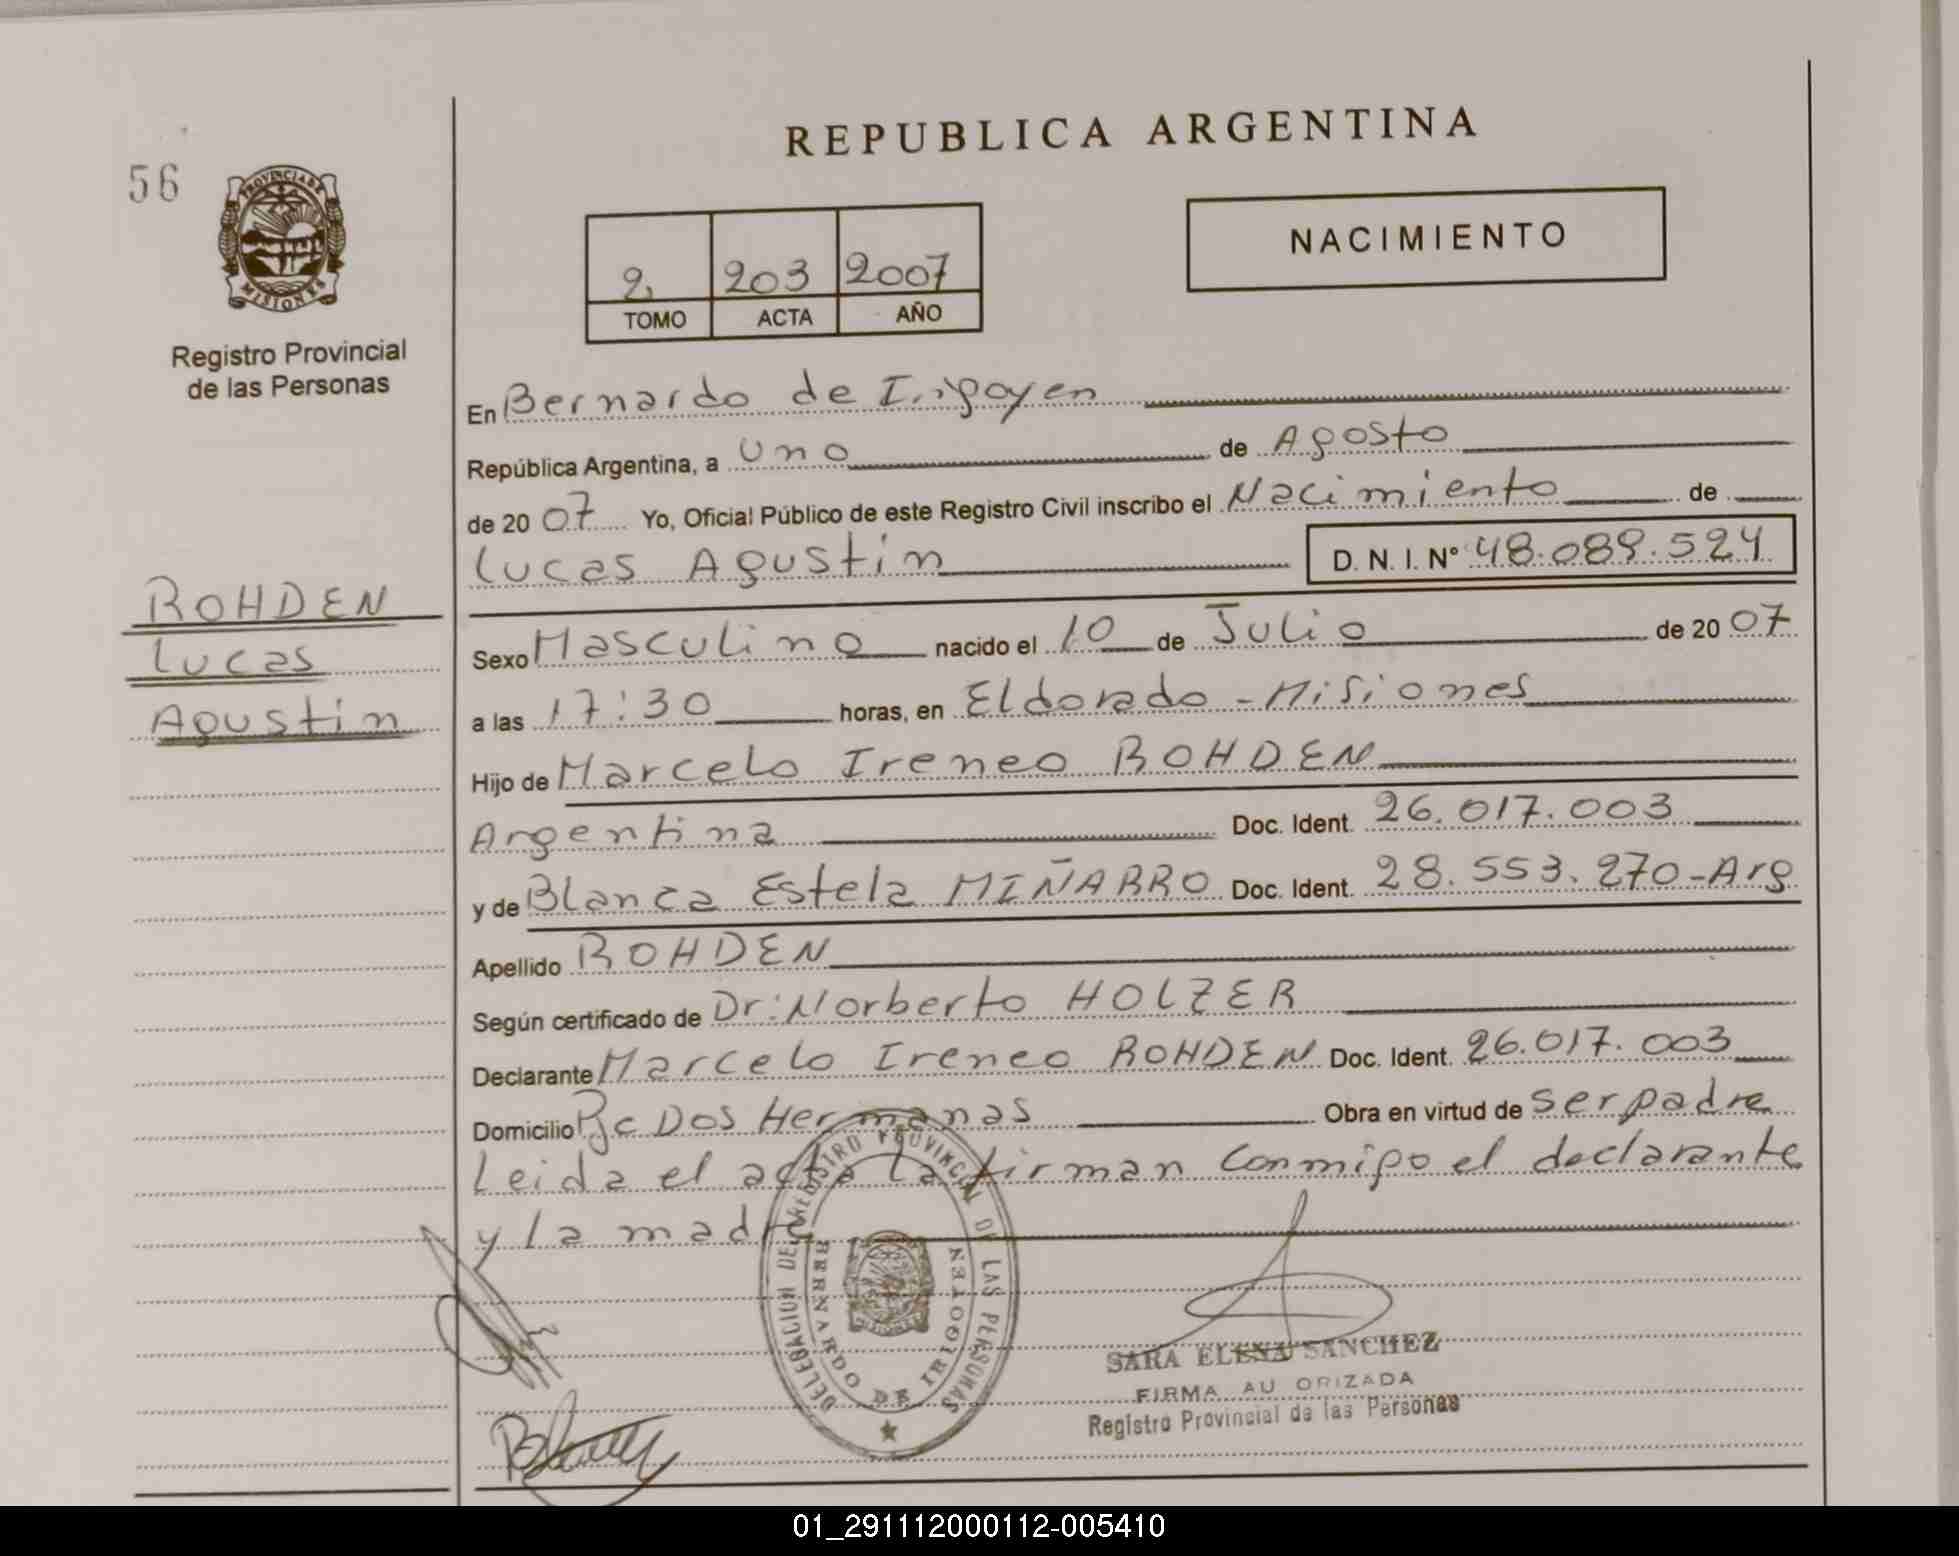 REPUBLICA ARGENTINA
56
PROVINCIA DE
MISIONES
Registro Provincial
de las Personas
NACIMIENTO
2 203 2007
TOMO ACTA AÑO
En Bernardo de Irigoyen
República Argentina, a uno de Agosto
de 20 07 Yo, Oficial Público de este Registro Civil inscribo el Nacimiento de
Lucas Agustín D. N. I. Nº 48.089.524
ROHDEN
Lucas
Agustin
Sexo Masculino nacido el 10 de Julio de 20 07
a las 17:30 horas, en Eldorado - Misiones
Hijo de Marcelo Ireneo ROHDEN
Argentina Doc. Ident. 26.017.003
y de Blanca Estela MIÑARRO Doc. Ident. 28.553.270-Arg
Apellido ROHDEN
Según certificado de Dr: Norberto HOLZER
Declarante Marcelo Ireneo ROHDEN Doc. Ident. 26.017.003
Domicilio Pje Dos Hermanas Obra en virtud de ser padre
Leida el acta la firman conmigo el declarante
y la madre
DELEGACION DEL REGISTRO PROVINCIAL DE LAS PERSONAS
BERNARDO DE IRIGOYEN
MISIONES
SARA ELENA SANCHEZ
FIRMA AU ORIZADA
Registro Provincial de las Personas
01_291112000112-005410